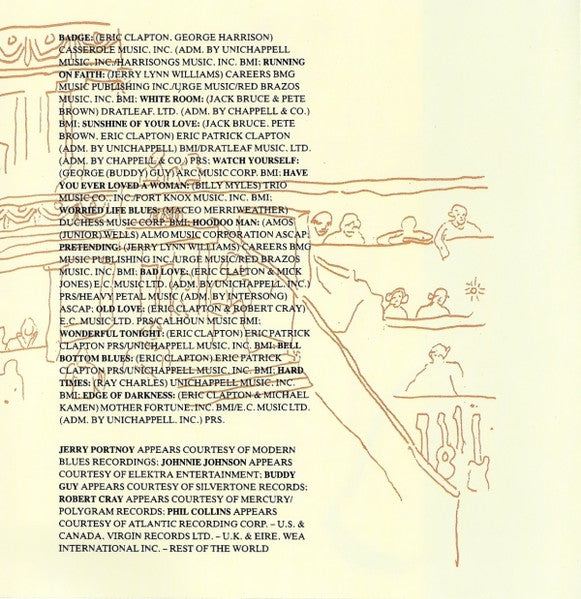 BADGE: (ERIC CLAPTON, GEORGE HARRISON)
CASSEROLE MUSIC, INC. (ADM. BY UNICHAPPELL
MUSIC, INC./HARRISONGS MUSIC, INC. BMI; RUNNING
ON FAITH: (JERRY LYNN WILLIAMS) CAREERS BMG
MUSIC PUBLISHING INC./URGE MUSIC/RED BRAZOS
MUSIC, INC. BMI: WHITE ROOM: (JACK BRUCE & PETE
BROWN) DRATLEAF, LTD. (ADM. BY CHAPPELL & CO.)
BMI; SUNSHINE OF YOUR LOVE: (JACK BRUCE, PETE
BROWN, ERIC CLAPTON) ERIC PATRICK CLAPTON
(ADM. BY UNICHAPPELL) BMI/DRATLEAF MUSIC, LTD.
(ADM. BY CHAPPELL & CO.) PRS; WATCH YOURSELF:
(GEORGE (BUDDY) GUY) ARC MUSIC CORP. BMI; HAVE
YOU EVER LOVED A WOMAN: (BILLY MYLES) TRIO
MUSIC CO., INC./FORT KNOX MUSIC, INC. BMI;
WORRIED LIFE BLUES: (MACEO MERRIWEATHER)
DUCHESS MUSIC CORP. BMI; HOODOO MAN: (AMOS
(JUNIOR) WELLS) ALMO MUSIC CORPORATION ASCAP;
PRETENDING: (JERRY LYNN WILLIAMS) CAREERS BMG
MUSIC PUBLISHING INC./URGE MUSIC/RED BRAZOS
MUSIC, INC. BMI; BAD LOVE: (ERIC CLAPTON & MICK
JONES) E.C. MUSIC LTD. (ADM. BY UNICHAPPELL, INC.)
PRS/HEAVY PETAL MUSIC (ADM. BY INTERSONG)
ASCAP; OLD LOVE: (ERIC CLAPTON & ROBERT CRAY)
E.C. MUSIC LTD. PRS/CALHOUN MUSIC BMI;
WONDERFUL TONIGHT: (ERIC CLAPTON) ERIC PATRICK
CLAPTON PRS/UNICHAPPELL MUSIC, INC. BMI; BELL
BOTTOM BLUES: (ERIC CLAPTON) ERIC PATRICK
CLAPTON PRS/UNICHAPPELL MUSIC, INC. BMI; HARD
TIMES: (RAY CHARLES) UNICHAPPELL MUSIC, INC.
BMI; EDGE OF DARKNESS: (ERIC CLAPTON & MICHAEL
KAMEN) MOTHER FORTUNE, INC. BMI/E.C. MUSIC LTD.
(ADM. BY UNICHAPPELL, INC.) PRS.
JERRY PORTNOY APPEARS COURTESY OF MODERN
BLUES RECORDINGS; JOHNNIE JOHNSON APPEARS
COURTESY OF ELEKTRA ENTERTAINMENT; BUDDY
GUY APPEARS COURTESY OF SILVERTONE RECORDS;
ROBERT CRAY APPEARS COURTESY OF MERCURY/
POLYGRAM RECORDS; PHIL COLLINS APPEARS
COURTESY OF ATLANTIC RECORDING CORP. – U.S. &
CANADA, VIRGIN RECORDS LTD. – U.K. & EIRE, WEA
INTERNATIONAL INC. – REST OF THE WORLD